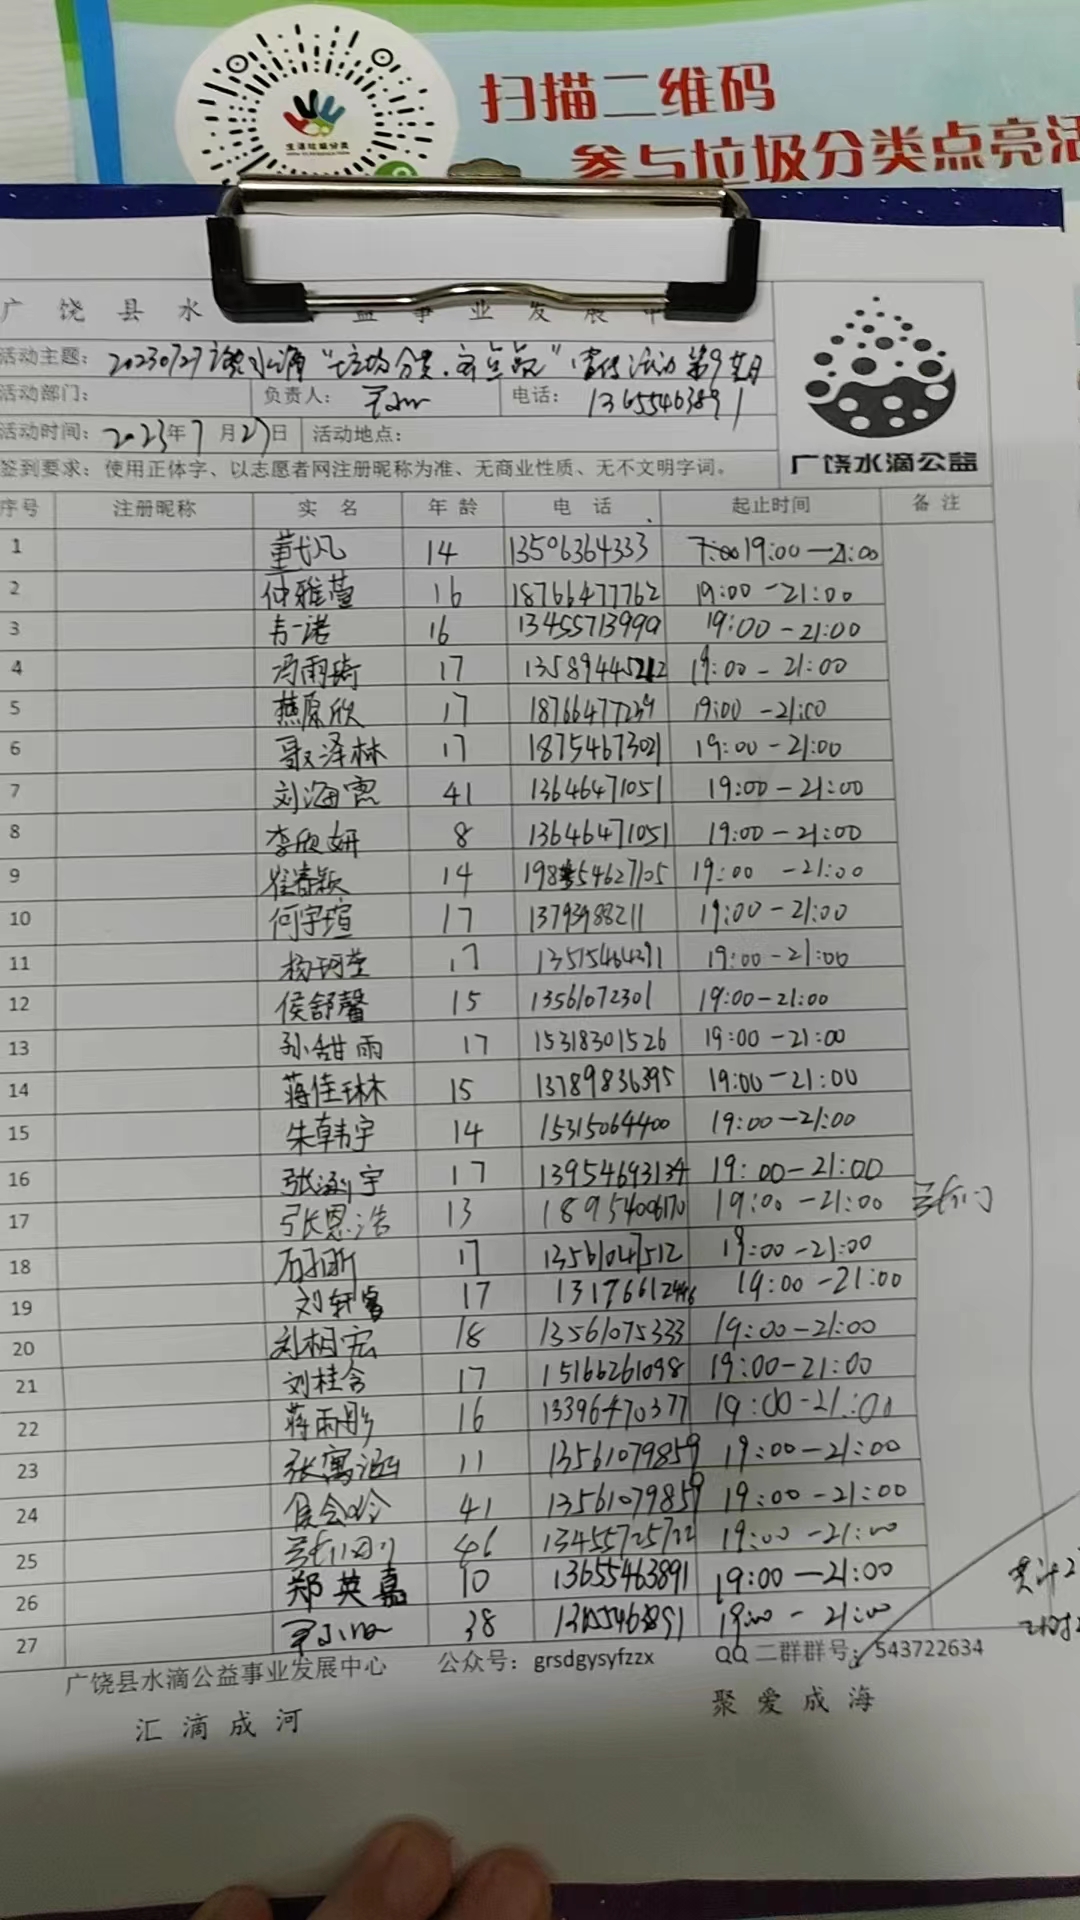 生活垃圾分类
扫描二维码
参与垃圾分类点亮活
广饶县水 益事业发展中
活动主题：20230727 水滴"垃圾分类
广饶水滴公益
活动部门： 负责人： 电话：13655463891
活动时间：2023年7月27日 活动地点：
签到要求：使用正体字、以志愿者网注册昵称为准、无商业性质、无不文明字词。
序号 注册昵称 实名 年龄 电话 起止时间 备注
1 14 13506364333 7:00 19:00—21:00
2 仲雅萱 16 18766477762 19:00-21:00
3 一诺 16 13455713999 19:00-21:00
4 冯雨琦 17 19:00-21:00
5 燕原欣 17 19:00-21:00
6 泽林 17 18754673021 19:00-21:00
7 刘海霞 41 13646471051 19:00-21:00
8 李欣妍 8 13646471051 19:00-21:00
9 崔春颖 14 19:00-21:00
10 何宇瑄 17 13793988211 19:00-21:00
11 17 13515464391 19:00-21:00
12 侯舒馨 15 13561072301 19:00-21:00
13 孙甜雨 17 15318301526 19:00-21:00
14 蒋佳琳 15 13789836395 19:00-21:00
15 朱韩宇 14 15315064400 19:00-21:00
16 张涵宇 17 13954693134 19:00-21:00
17 张恩浩 13 18954006170 19:00-21:00
18 17 13561047512 19:00-21:00
19 刘轩睿 17 19:00-21:00
20 刘相宏 18 13561075333 19:00-21:00
21 刘桂含 17 15166261098 19:00-21:00
22 蒋雨彤 16 13396470377 19:00-21:00
23 张寓涵 11 13561079859 19:00-21:00
24 41 13561079859 19:00-21:00
25 46 13455725722 19:00-21:00
26 郑英嘉 10 13655463891 19:00—21:00
共计2
27 38 13655463891 19:00-21:00
广饶县水滴公益事业发展中心 公众号：grsdgysyfzzx QQ二群群号：543722634
汇滴成河 聚爱成海